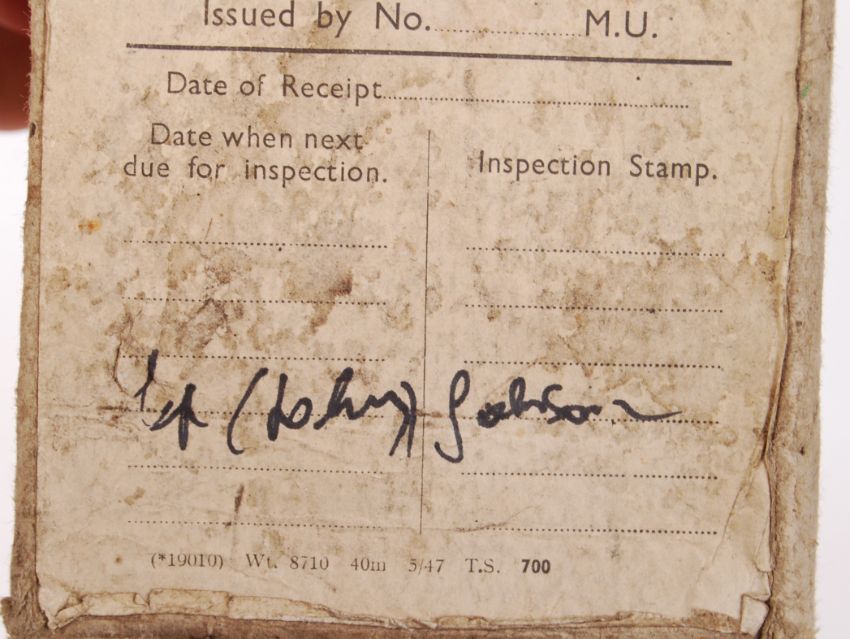 Issued by No. M.U.
Date of Receipt
Date when next
due for inspection.
Inspection Stamp.
(Johnny) Johnson
(*19010) Wt. 8710 40m 5/47 T.S. 700